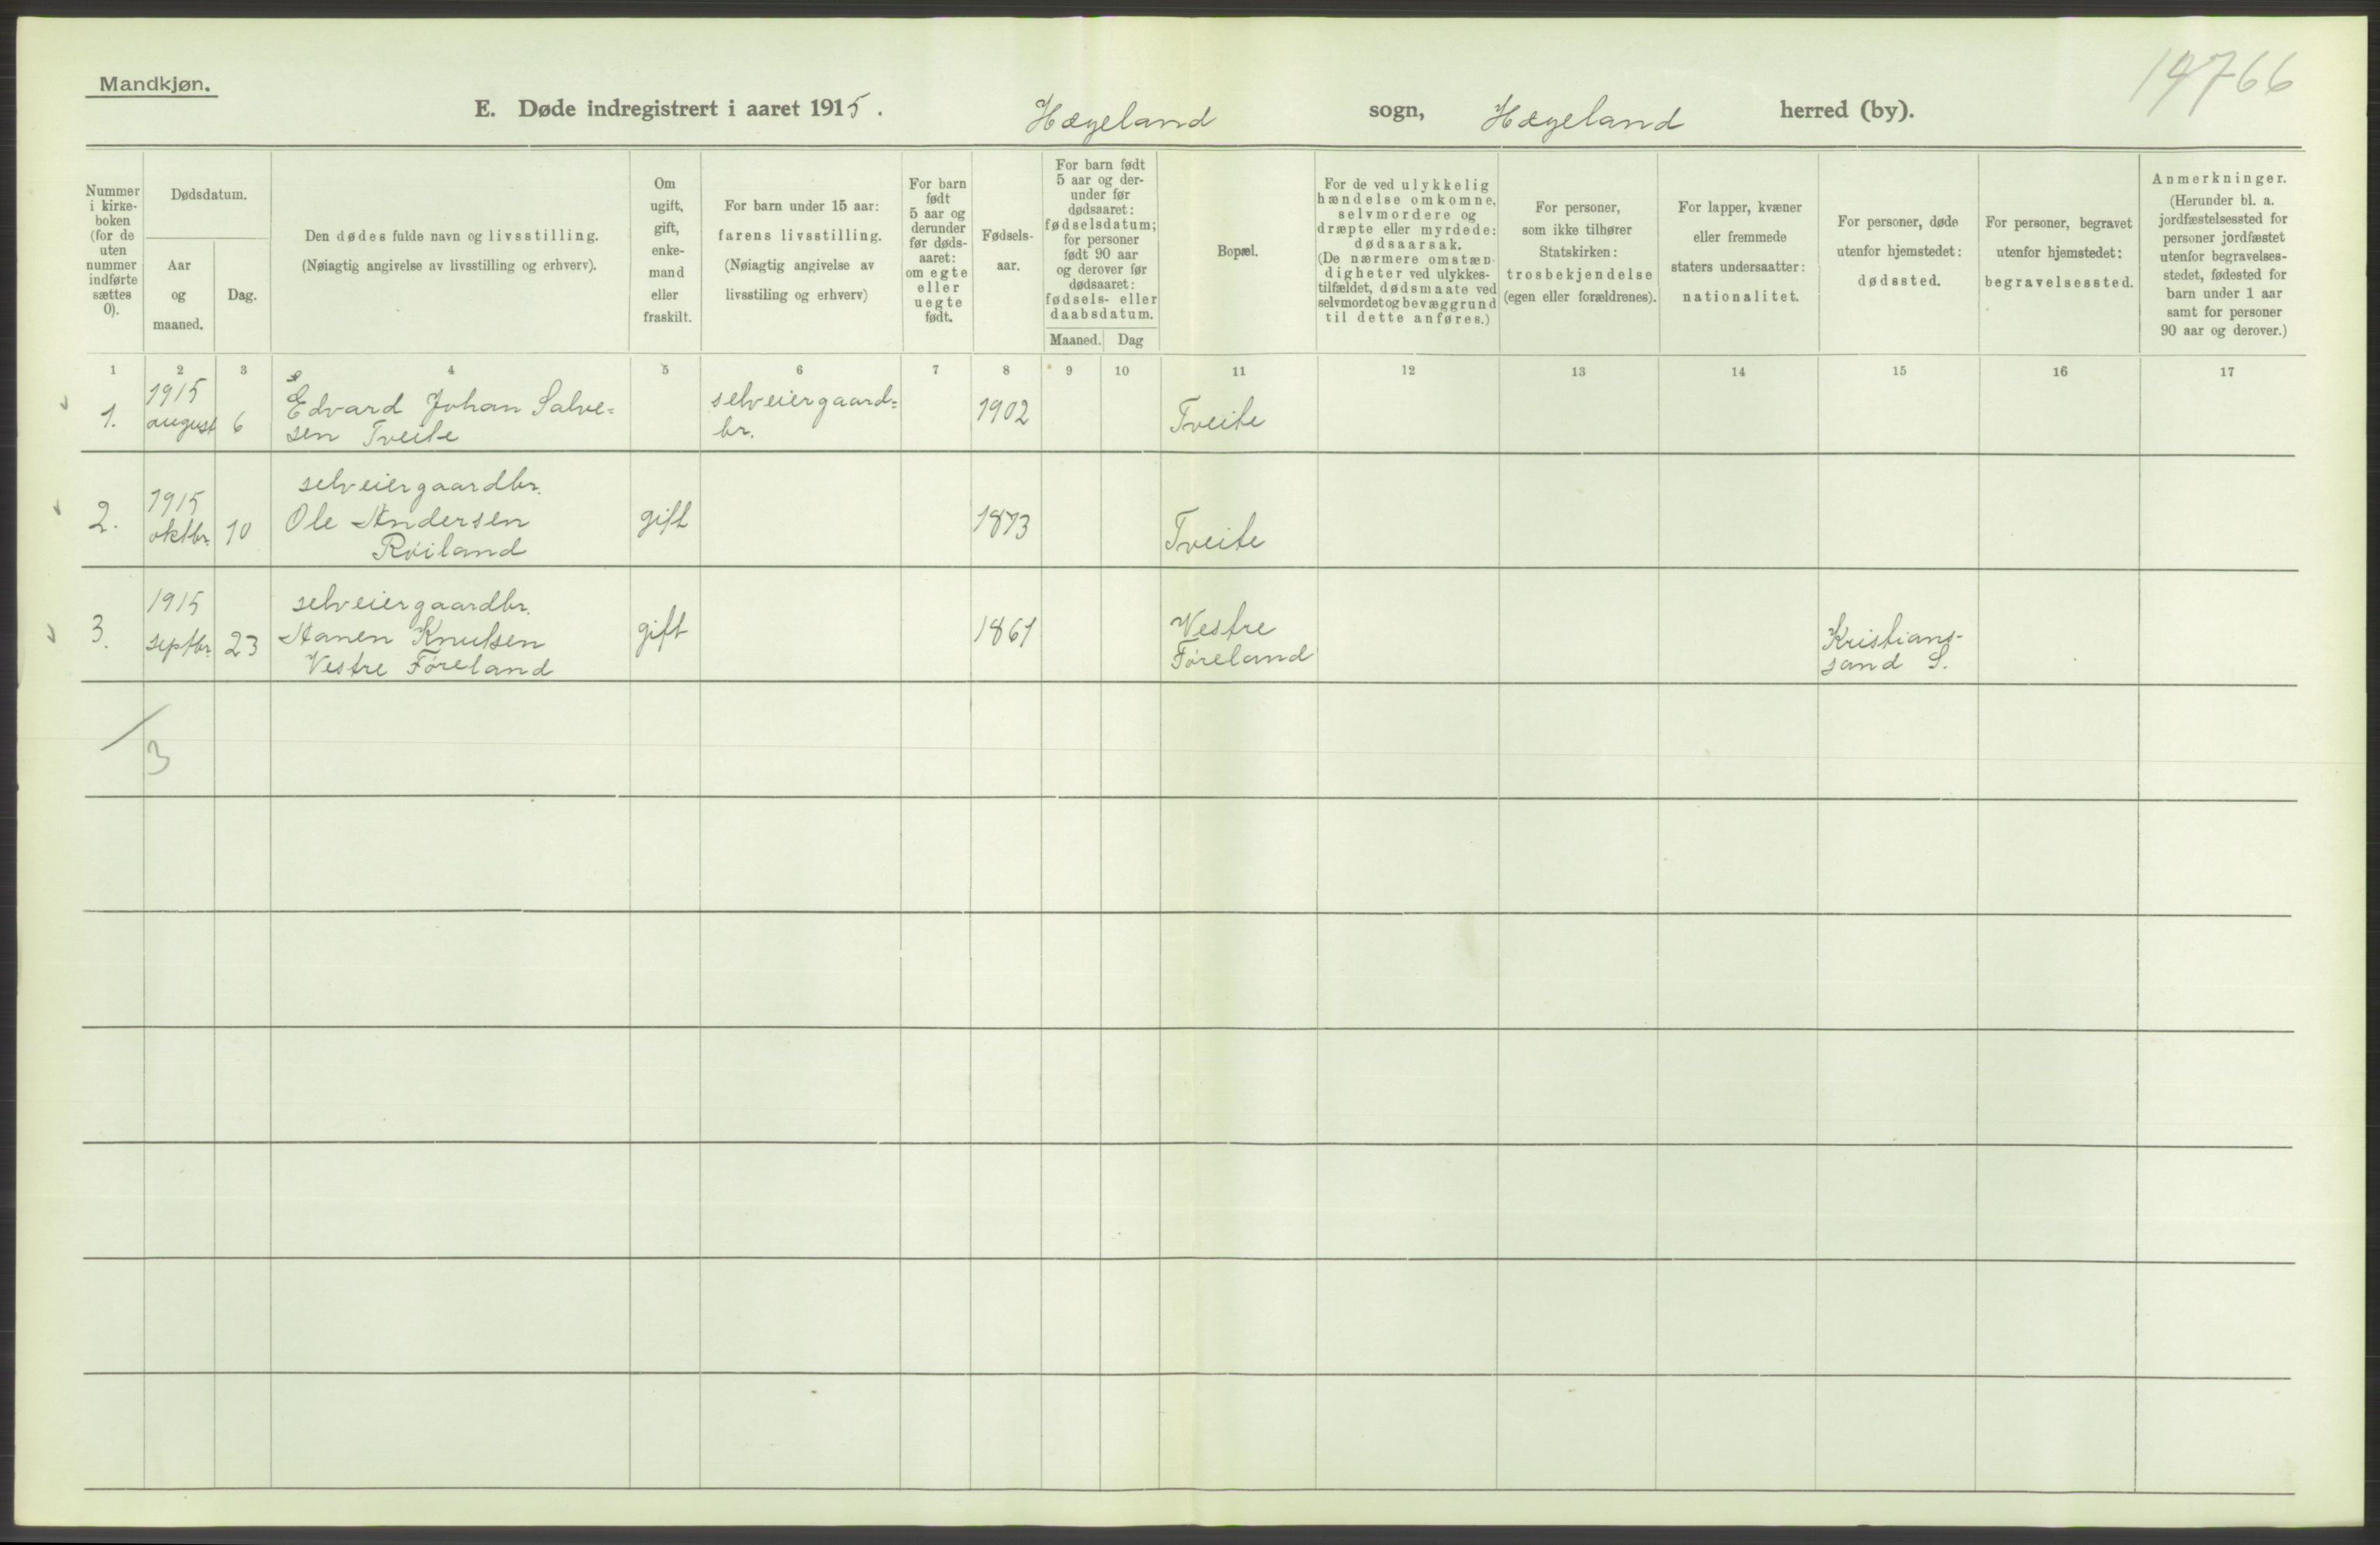 Mandkjøn.
14766
E. Døde indregistrert i aaret 1915. Hægeland sogn, Hægeland herred (by).
Nummer i kirke-boken (for de uten nummer indførte sættes 0).
Dødsdatum.
Aar og maaned.
Dag.
Den dødes fulde navn og livsstilling.
(Nøiagtig angivelse av livsstilling og erhverv).
Om ugift, gift, enke-mand eller fraskilt.
For barn under 15 aar:
farens livsstilling.
(Nøiagtig angivelse av
livsstiling og erhverv)
For barn født 5 aar og derunder før døds-aaret: om egte eller uegte født.
Fødsels-aar.
For barn født 5 aar og der-under før dødsaaret: fødselsdatum; for personer født 90 aar og derover før dødsaaret: fødsels- eller daabsdatum.
Maaned. Dag
Bopæl.
For de ved ulykkelig
hændelse omkomne,
selvmordere og
dræpte eller myrdede:
dødsaarsak.
(De nærmere omstæn-
digheter ved ulykkes-
tilfældet, dødsmaate ved
selvmordet og bevæggrund
til dette anføres.)
For personer,
som ikke tilhører
Statskirken:
trosbekjendelse
(egen eller forældrenes).
For lapper, kvæner
eller fremmede
staters undersaatter:
nationalitet.
For personer, døde
utenfor hjemstedet:
dødssted.
For personer, begravet
utenfor hjemstedet:
begravelsessted.
Anmerkninger.
(Herunder bl. a.
jordfæstelsessted for
personer jordfæstet
utenfor begravelses-
stedet, fødested for
barn under 1 aar
samt for personer
90 aar og derover.)
1 2 3 4 5 6 7 8 9 10 11 12 13 14 15 16 17
1. 1915 august 6 Edvard Johan Salve=
sen Tveite selveiergaard=
br. 1902 Tveite
2. 1915 oktbr. 10 selveiergaardbr.
Ole Andersen
Røiland gift 1873 Tveite
3. 1915 septbr. 23 selveiergaardbr.
Aanen Knutsen
Vestre Føreland gift 1861 Vestre
Føreland Kristians-
sand S.
3